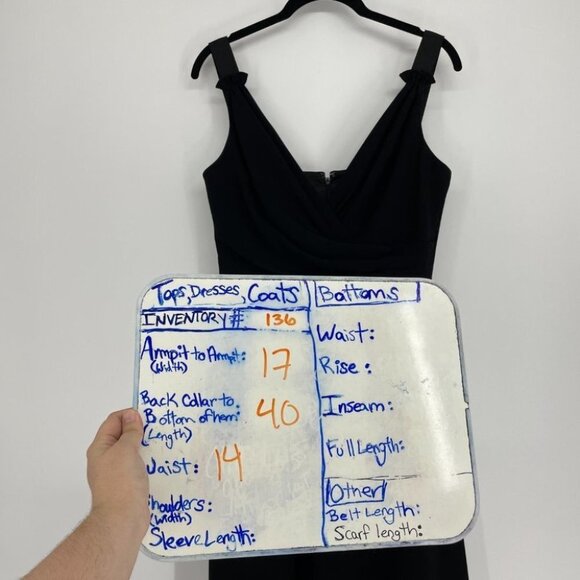 Tops, Dresses, Coats
INVENTORY # 136
Armpit to Armpit: 17
(Width)
Back Collar to
Bottom of hem: 40
(Length)
Waist: 14
Shoulders:
(width)
Sleeve Length:
Bottoms
Waist:
Rise:
Inseam:
Full Length:
Other
Belt Length:
Scarf length: